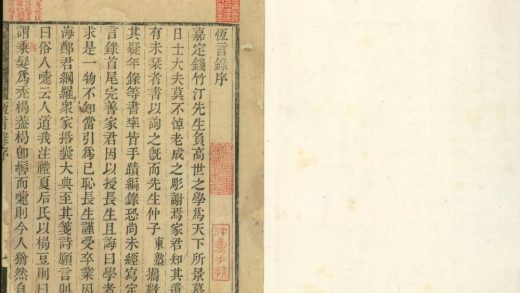 恆言錄序
嘉定錢竹汀先生負高世之學爲天下所景慕
日士大夫莫不悼老成之彫謝焉家君知其遺
有未栞者書以詢之旣而先生仲子東塾攜數
其疑年錄等書率皆手蹟編錄恐尚未經寫定
言錄首尾完善家君因以授長生且誨曰學者
求是一物不知當引爲己恥長生謹受卒業因
海鄭君網羅衆家括囊大典至其箋詩願言則
曰俗人嚏云人道我注禮夏后氏以楬豆則曰
謂髮爲禿楬葢楬卽而嚏則今人猶然自
恆言錄序